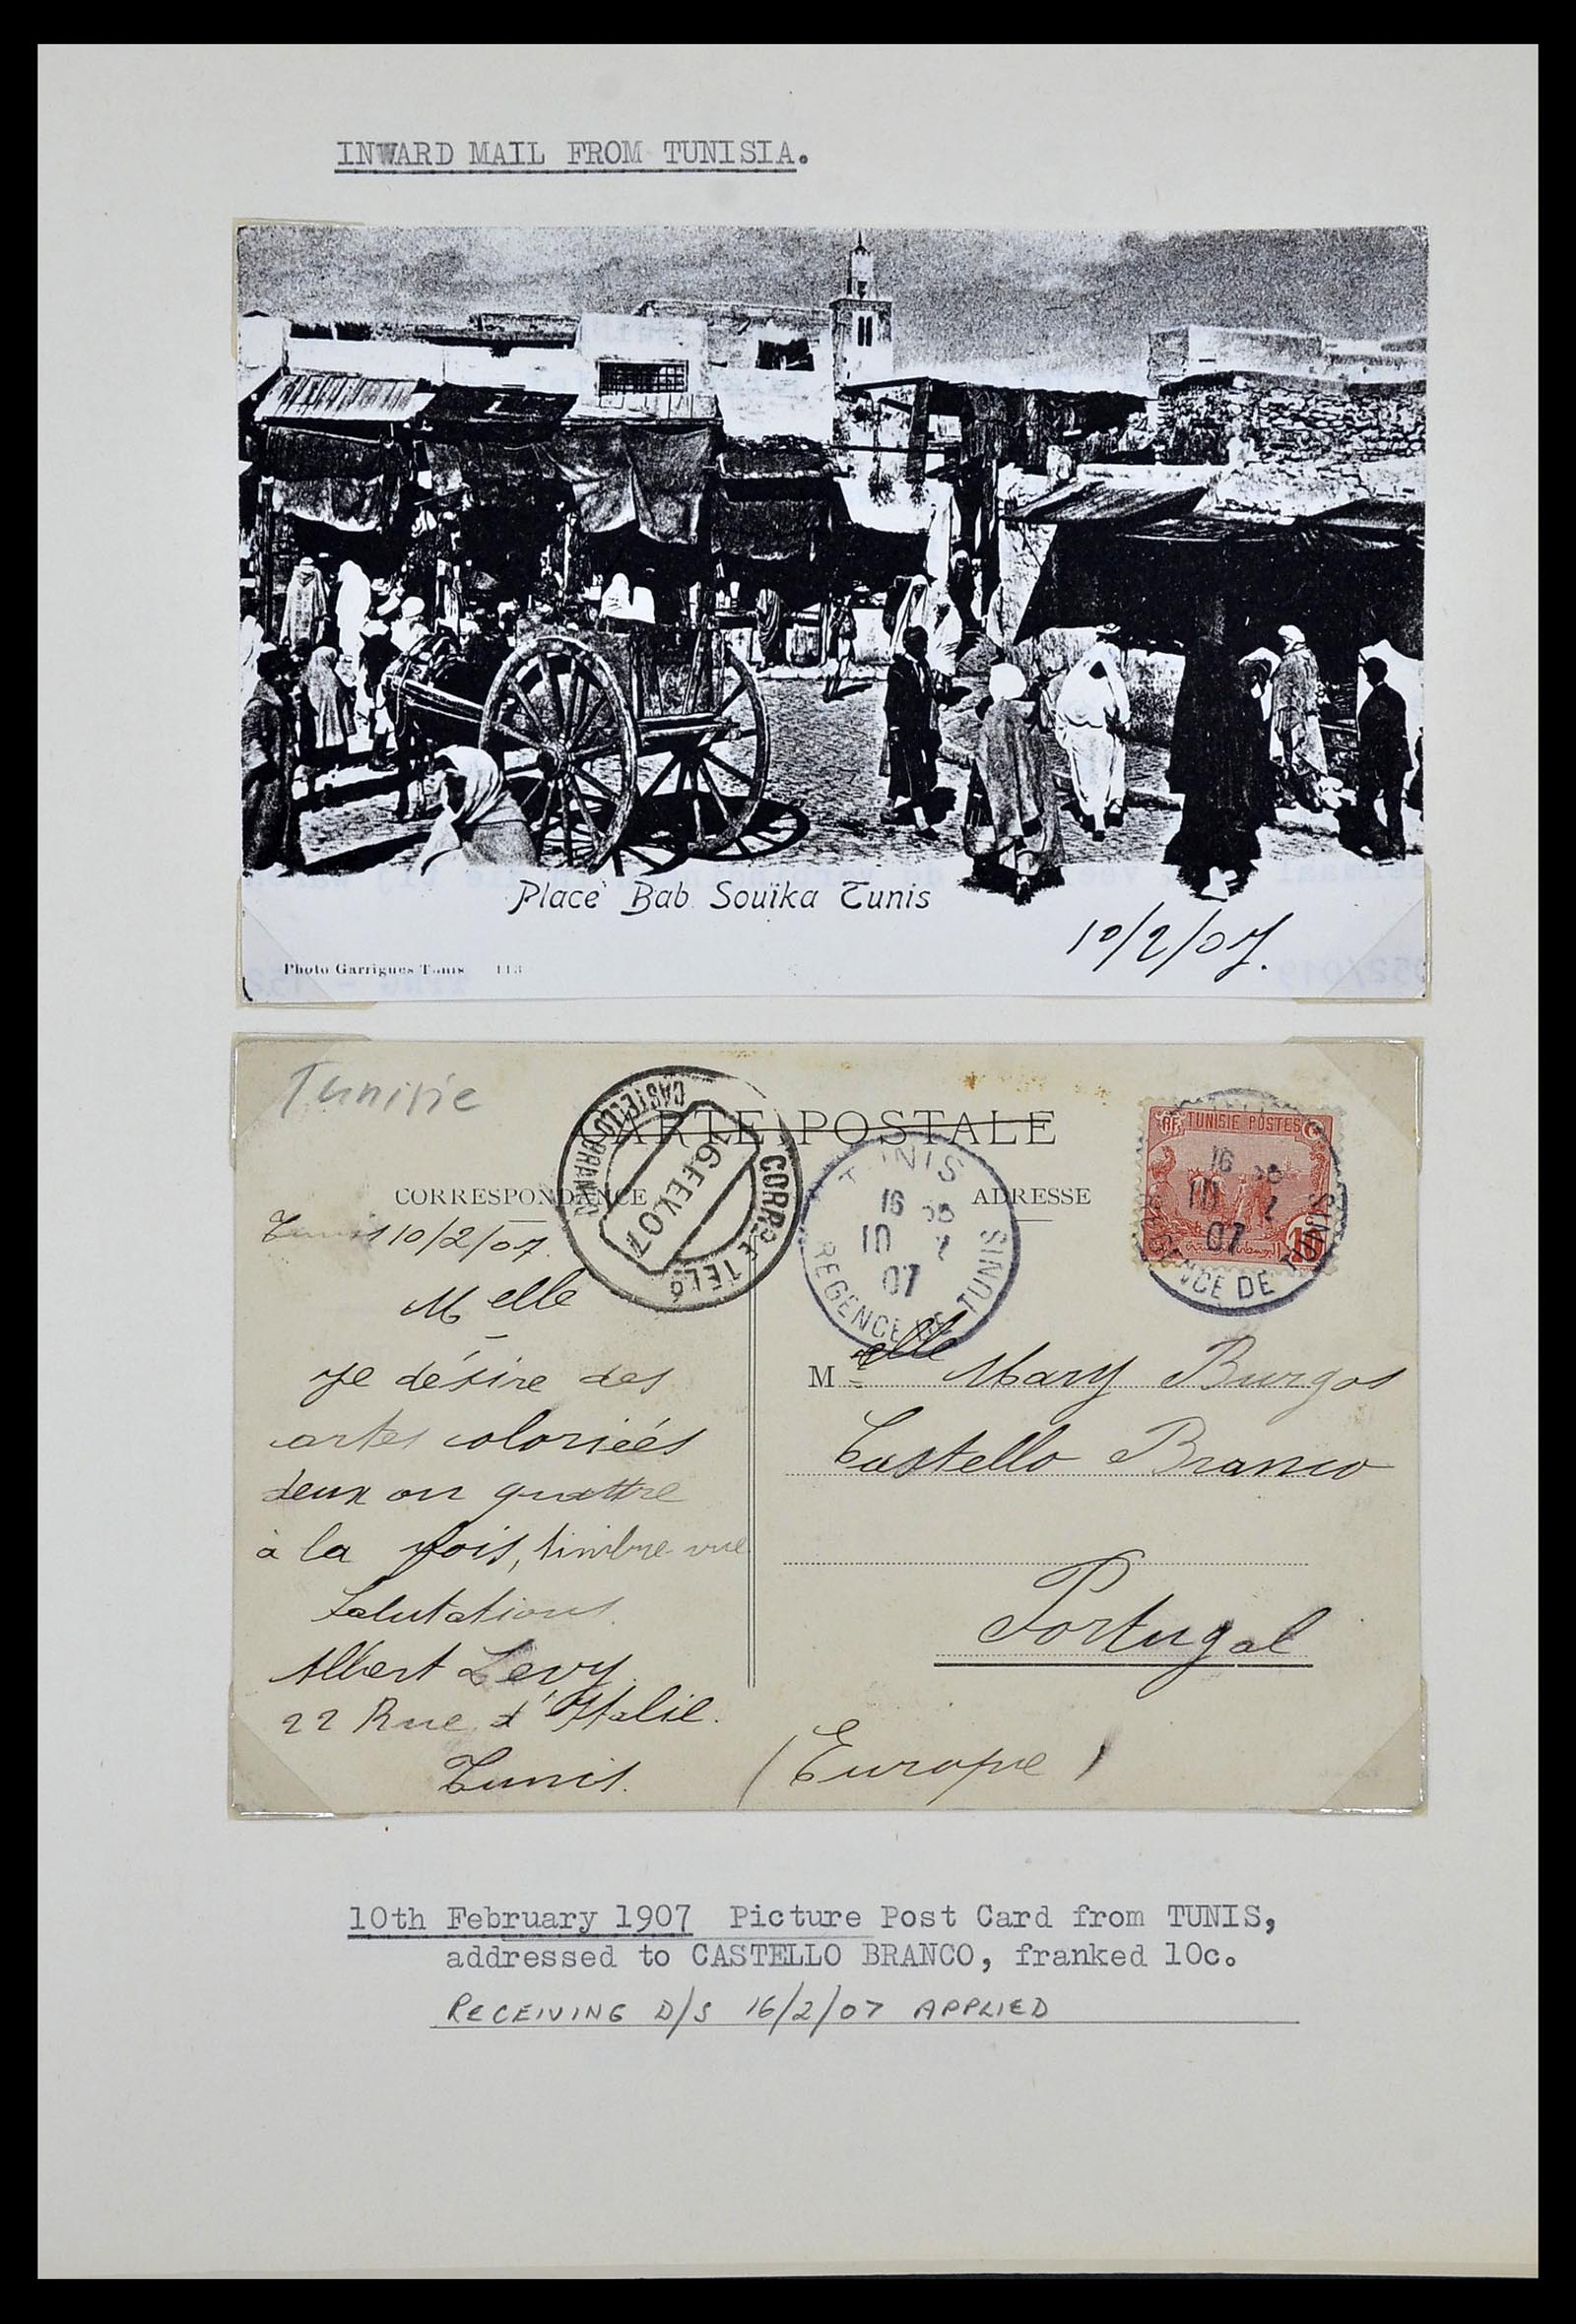 INWARD MAIL FROM TUNISIA.
Place Bab Souïka Tunis
10/2/07.
Photo Garrigues Tunis 113
Tunisie
CARTE POSTALE
CORRESPONDANCE
ADRESSE
CORRº E TELº
CASTELLO BRANCO
16 FEV. 07
TUNIS
16
10 2
07
REGENCE DE TUNIS
RF TUNISIE POSTES
10
16
10 2
07
REGENCE DE TUNIS
Tunis 10/2/07.
Melle
Je désire des
cartes coloriées
deux ou quattre
à la fois, timbre vue
Salutations
Albert Levy
22 Rue d'Italie.
Tunis.
Melle Mary Burgos
Castello Branco
Portugal
(Europe)
10th February 1907 Picture Post Card from TUNIS,
addressed to CASTELLO BRANCO, franked 10c.
RECEIVING D/S 16/2/07 APPLIED